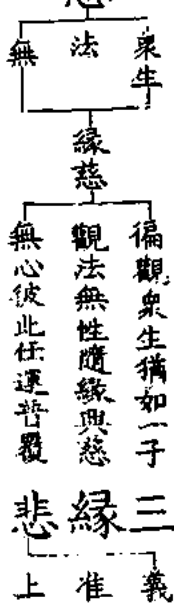 衆生
法
無
緣慈
徧觀衆生猶如一子
觀法無性隨緣興慈
無心彼此任運普覆
三緣悲
義准上